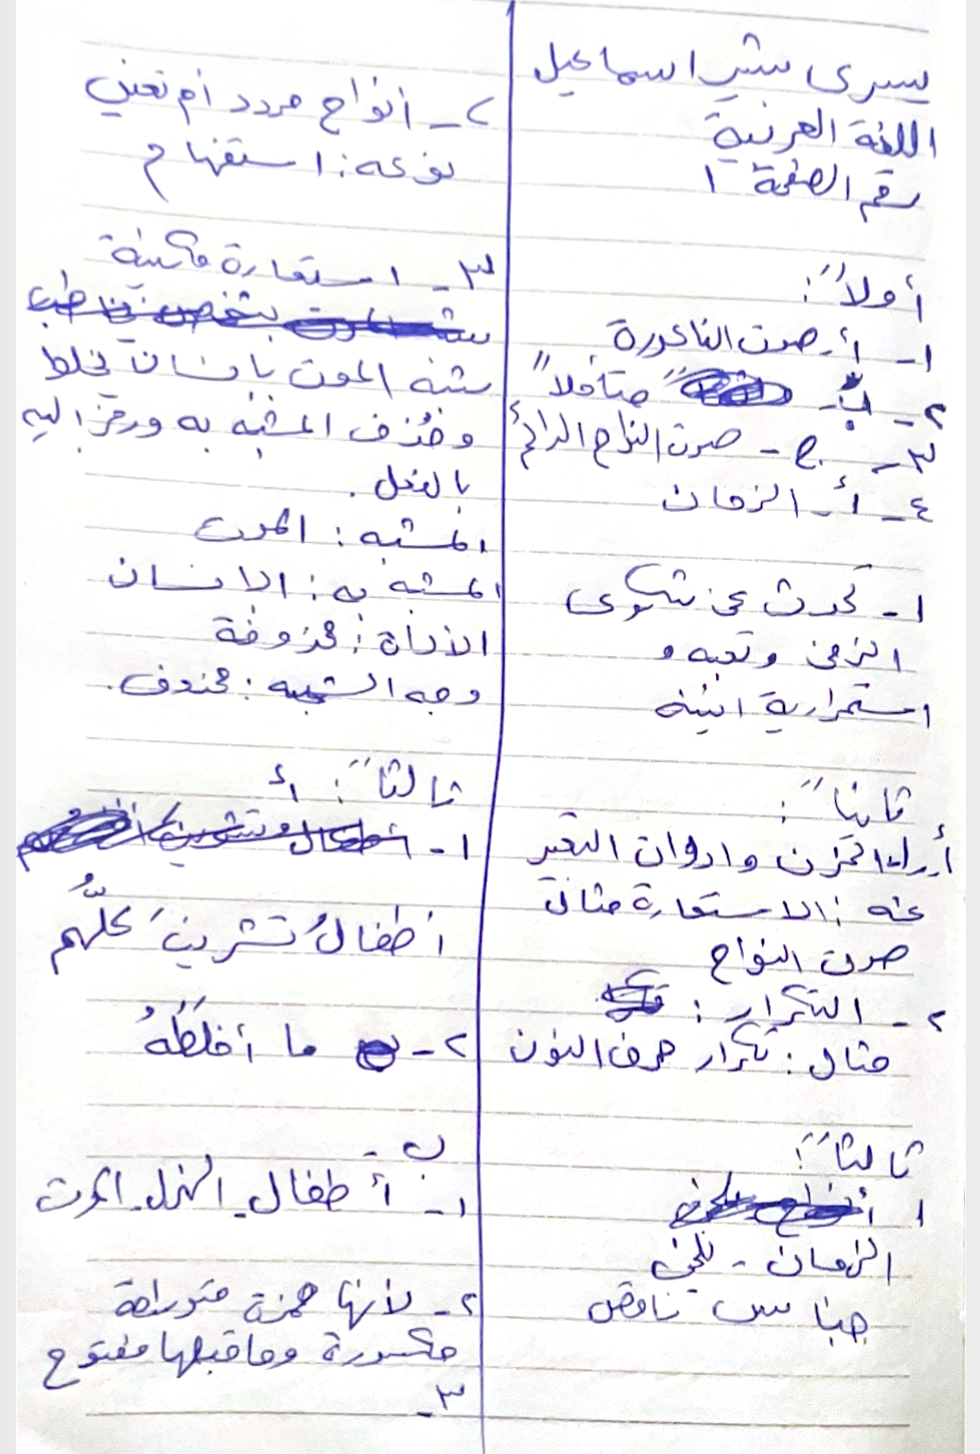 يسرى بشير اسماعيل
اللغة العربية
رقم الصفحة ١
أولاً:
١- أ- صوت الناعورة
٢- ب- "متأملاً"
٣- ج- صوت النواح الدائم
٤- أ- الزمان
١- تحدث عن شكوى
الزمن وتعبه و
استمرارية انينه
ثانياً:
أ- راء الحزن وادوات التعبير
عنه: الاستعارة مثال
صوت النواح
٢- التكرار:
مثال: تكرار حرف النون
ثالثاً:
١
الزمان - للحن
جناس ناقص
٢- أنواح مردد أم تغني
نوعه: استفهام
٣- استعارة مكنية
شبه الموت بانسان غلط
وحُذف المشبّه به ورمز اليه
بالفعل.
المشبه: الموت
المشبّه به: الانسان
الأداة: محذوفة
وجه الشبه: محذوف.
ثالثاً: أ
١-
أطفالُ تشرينَ كلُّهم
٢- ما أغلطَهُ
ب-
١- أطفال - الهزل - الموت
٢- لأنها همزة متوسطة
مكسورة وماقبلها مفتوح
٣-